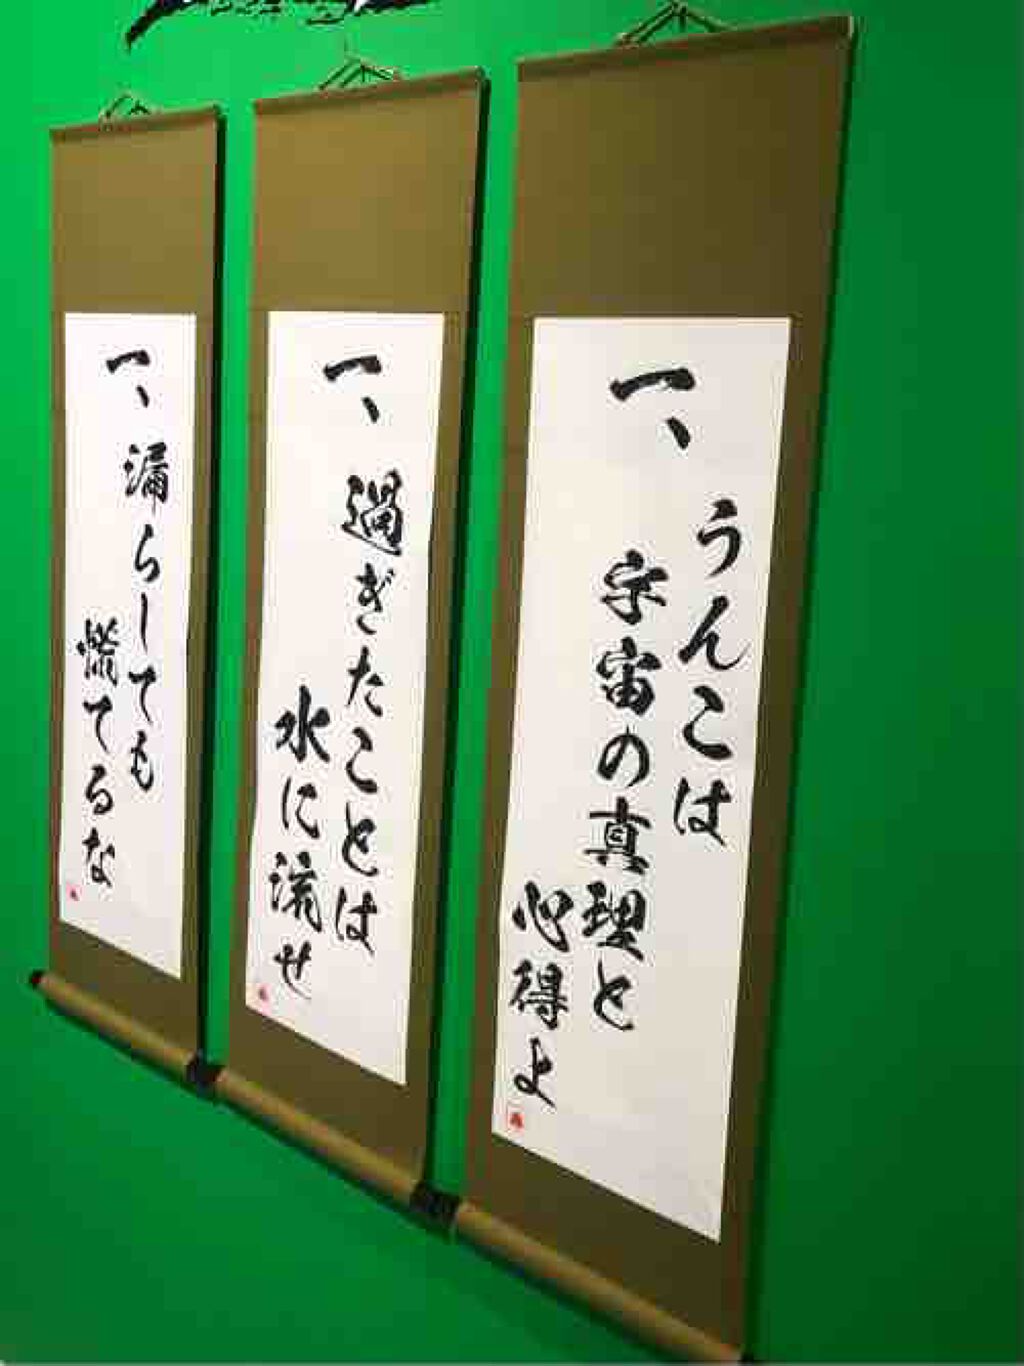 一、うんこは
宇宙の真理と
心得よ
一、過ぎたことは
水に流せ
一、漏らしても
慌てるな